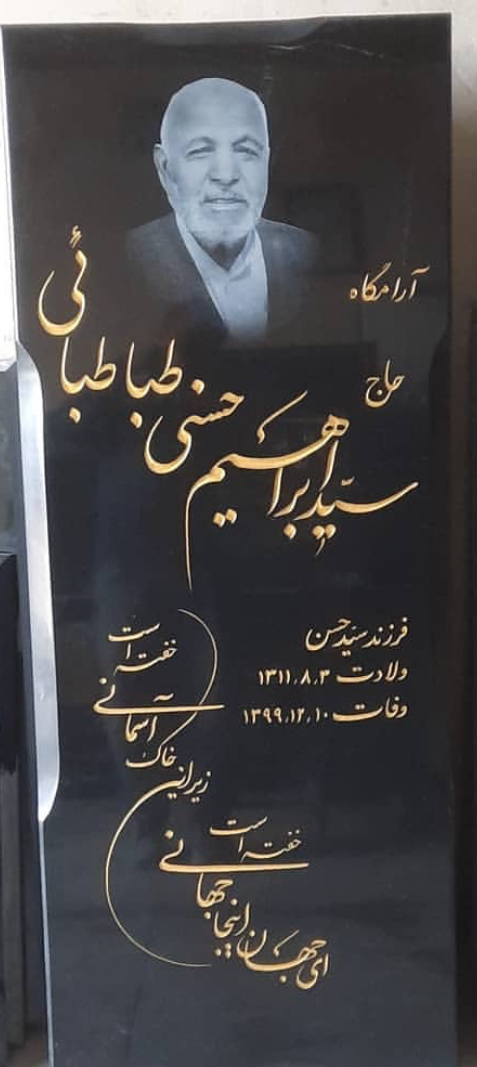 آرامگاه
حاج
سیّد ابراهیم حسنی طباطبائی
فرزند سیّد حسن
ولادت ۱۳۱۱٫۸٫۳
وفات ۱۳۹۹٫۱۲٫۱۰
ای جهان اینجا جهانی خفته است
زیر این خاک آسمانی خفته است